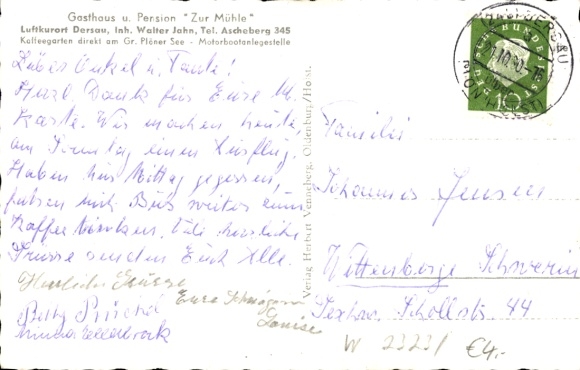 Gasthaus u. Pension "Zur Mühle"
Luftkurort Dersau, Inh. Walter Jahn, Tel. Ascheberg 345
Kaffeegarten direkt am Gr. Plöner See - Motorbootanlegestelle
Liebes Onkel u. Tante!
Herzl. Dank für Eure
Karte. Wir machen heute,
am Sonntag einen Ausflug.
Haben hier Mittag gegessen,
fahren mit Bus weiter zum
Kaffee trinken. Viele herzliche
Grüsse senden Euch Alle.
Herzliche Grüsse
Eure Schwägerin
Louise
Betty
Minna Ellerbrock
Verlag Herbert Venneberg, Oldenburg/Holst.
DEUTSCHE BUNDESPOST
10
Familie
Johannes Jensen
Wittenberge Schwerin
Schollstr. 44
W 2323/
€4.-